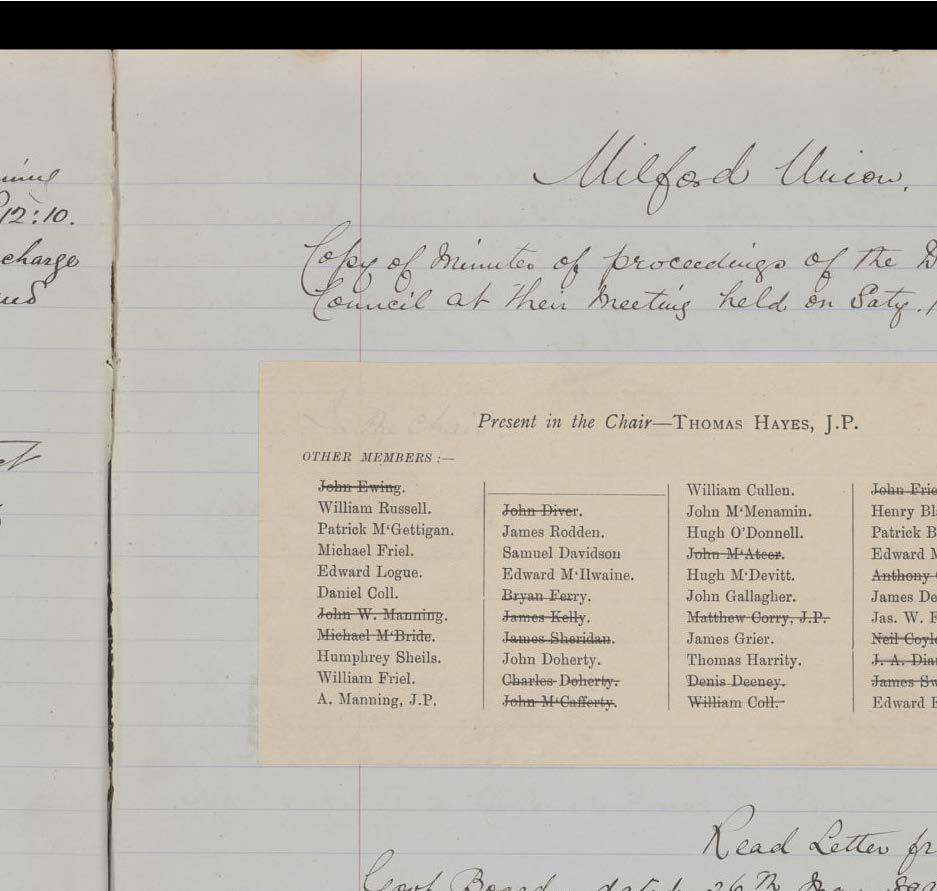 12:10.
charge
Milford Union.
Copy of Minutes of proceedings of the
Council at their Meeting held on Saty.
Present in the Chair—THOMAS HAYES, J.P.
OTHER MEMBERS :—
John Ewing.
William Russell.
Patrick M‘Gettigan.
Michael Friel.
Edward Logue.
Daniel Coll.
John W. Manning.
Michael M‘Bride.
Humphrey Sheils.
William Friel.
A. Manning, J.P.
John Diver.
James Rodden.
Samuel Davidson
Edward M‘Ilwaine.
Bryan Ferry.
James Kelly.
James Sheridan.
John Doherty.
Charles Doherty.
John M‘Cafferty.
William Cullen.
John M‘Menamin.
Hugh O’Donnell.
John M‘Ateer.
Hugh M‘Devitt.
John Gallagher.
Matthew Corry, J.P.
James Grier.
Thomas Harrity.
Denis Deeney.
William Coll.
John Frie
Henry Bl
Patrick B
Edward M
Anthony
James De
Jas. W. F
Neil Coyl
J. A. Dia
James Sw
Edward
Read Letter fr
Govt Board dated 26th